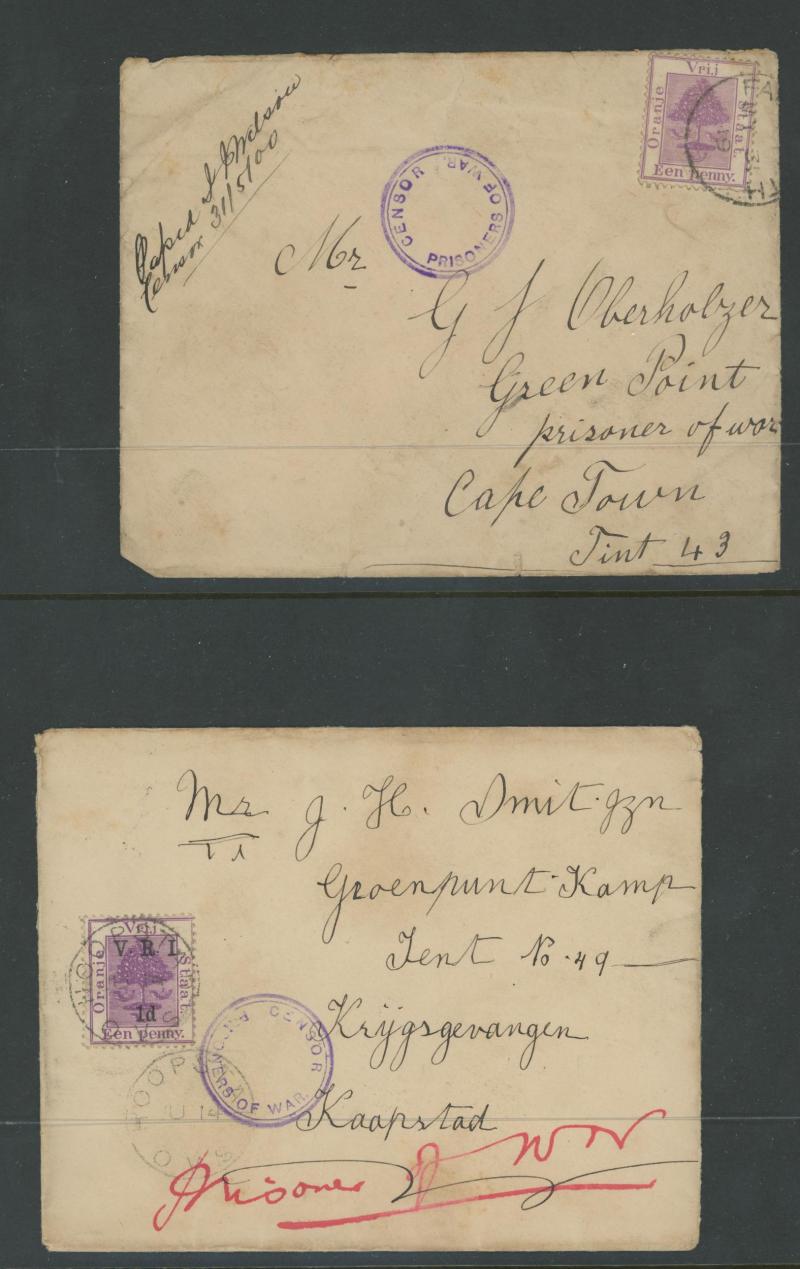 Censor 31/5/00
CENSOR PRISONERS OF WAR.
Vrij
Oranje
Staat.
Een penny.
Mr
G J Oberholzer
Green Point
prisoner of war
Cape Town
Tint 43
Mr J. H. Smit. Jzn
Groenpunt Kamp
Tent No. 49
Krijgsgevangen
Kaapstad
Vrij
V R I.
Oranje
Staat.
1d
Een penny.
HOOPS
JU 14
O V S
CENSOR PRISONERS OF WAR.
prisoner of War